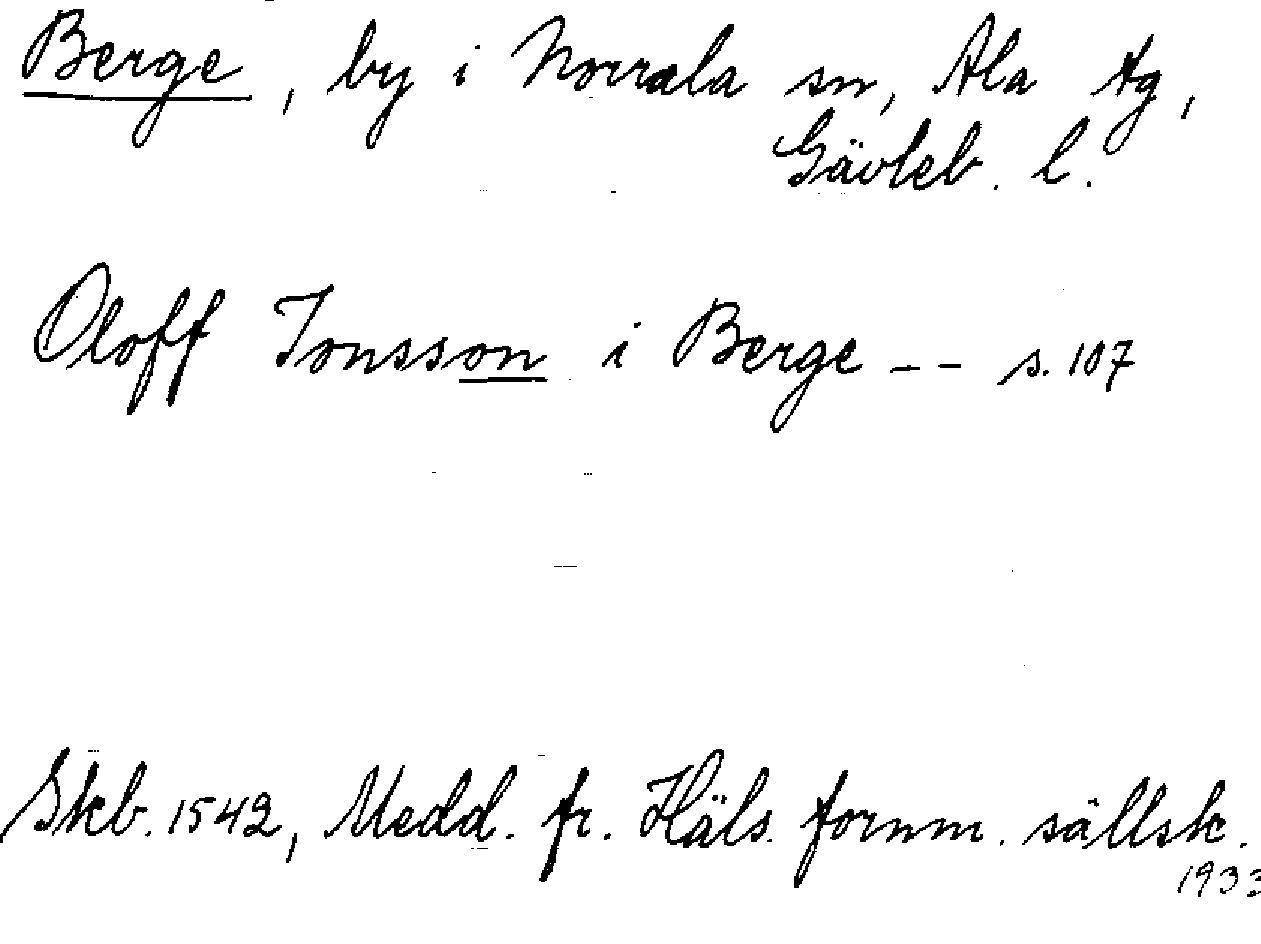 Berge, by i Norrala sn, Ala tg,
Gävleb. l.
Oloff Jonsson i Berge -- s. 107
Skb. 1542, Medd. fr. Häls. fornm. sällsk.
1933